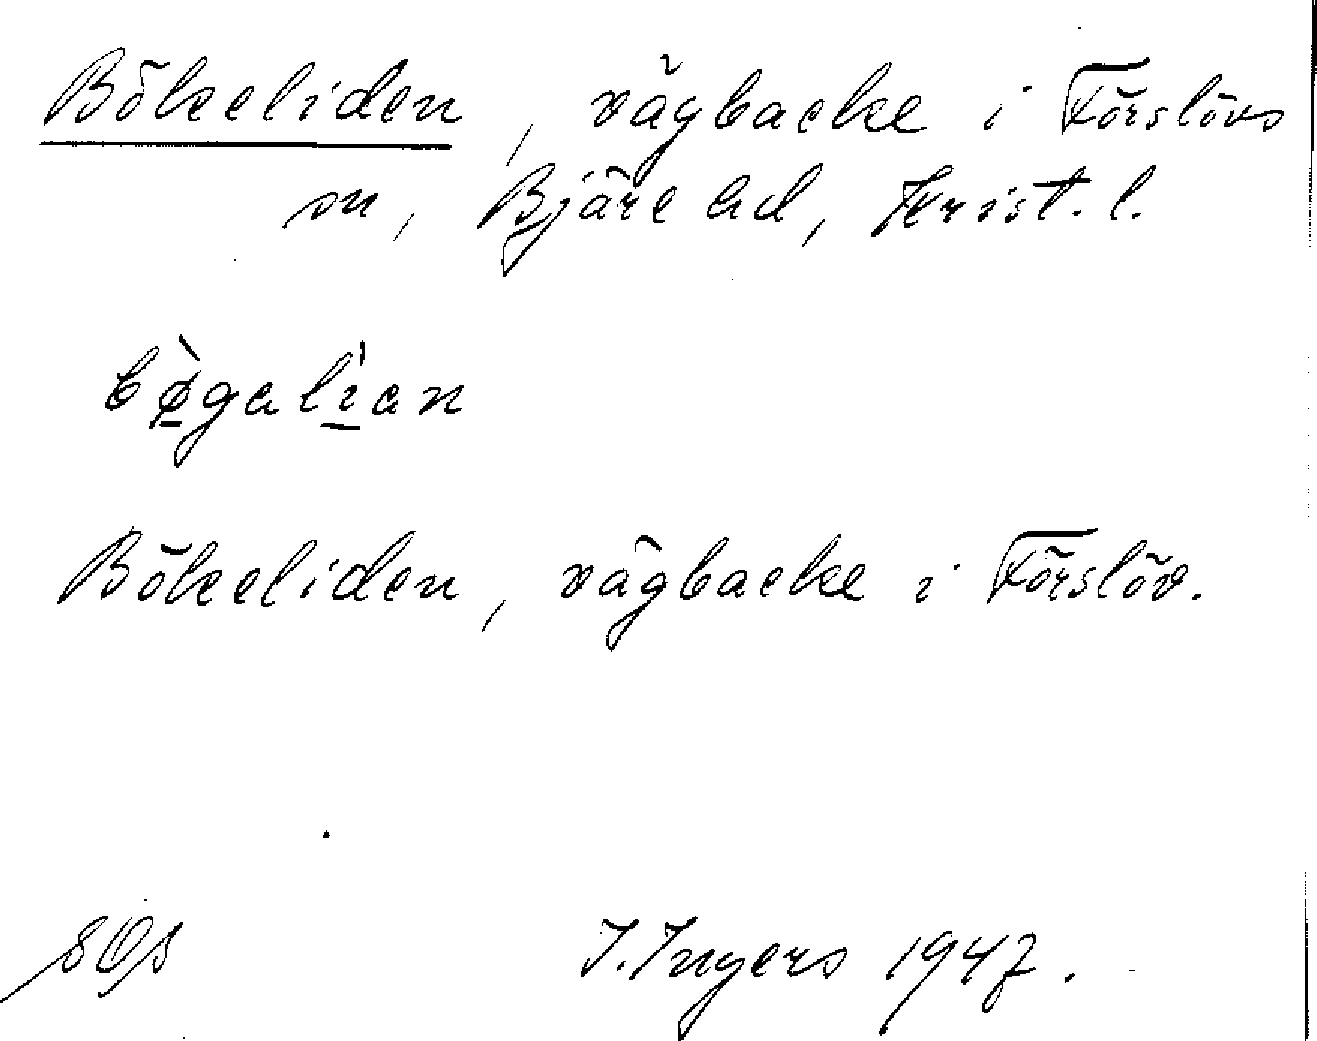 Bökeliden, vägbacke i Förslövs
sn, Bjäre hd, Krist. l.
bø̀galían
Bökeliden, vägbacke i Förslöv.
I. Ingers 1947.